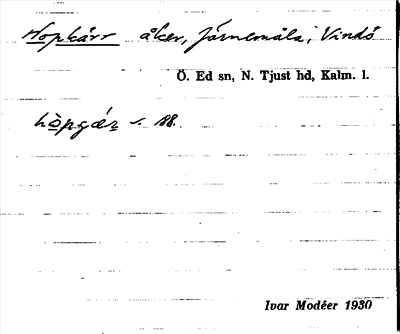 Hopkärr åker, Järnemåla, Vindö
Ö. Ed sn, N. Tjust hd, Kalm. l.
Ivar Modéer 1930